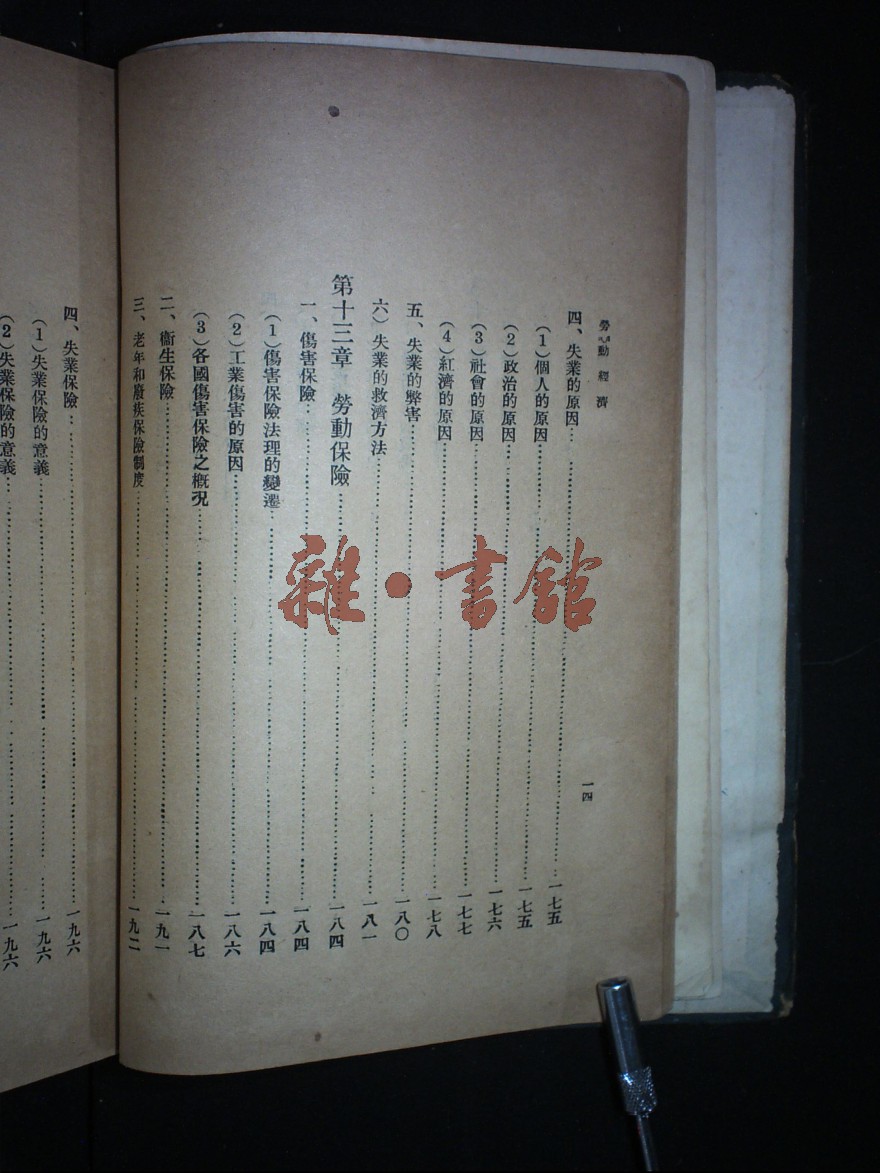 勞動經濟
一四
四、失業的原因…………一七五
（1）個人的原因…………一七五
（2）政治的原因…………一七六
（3）社會的原因…………一七七
（4）紅濟的原因…………一七八
五、失業的弊害…………一八〇
六）失業的救濟方法…………一八一
第十三章　勞動保險…………一八四
一、傷害保險…………一八四
（1）傷害保險法理的變遷…………一八四
（2）工業傷害的原因…………一八六
（3）各國傷害保險之概況…………一八七
二、衞生保險…………一九一
三、老年和廢疾保險制度…………一九二
四、失業保險…………一九六
（1）失業保險的意義…………一九六
（2）失業保險的意義…………一九六
雜・書館